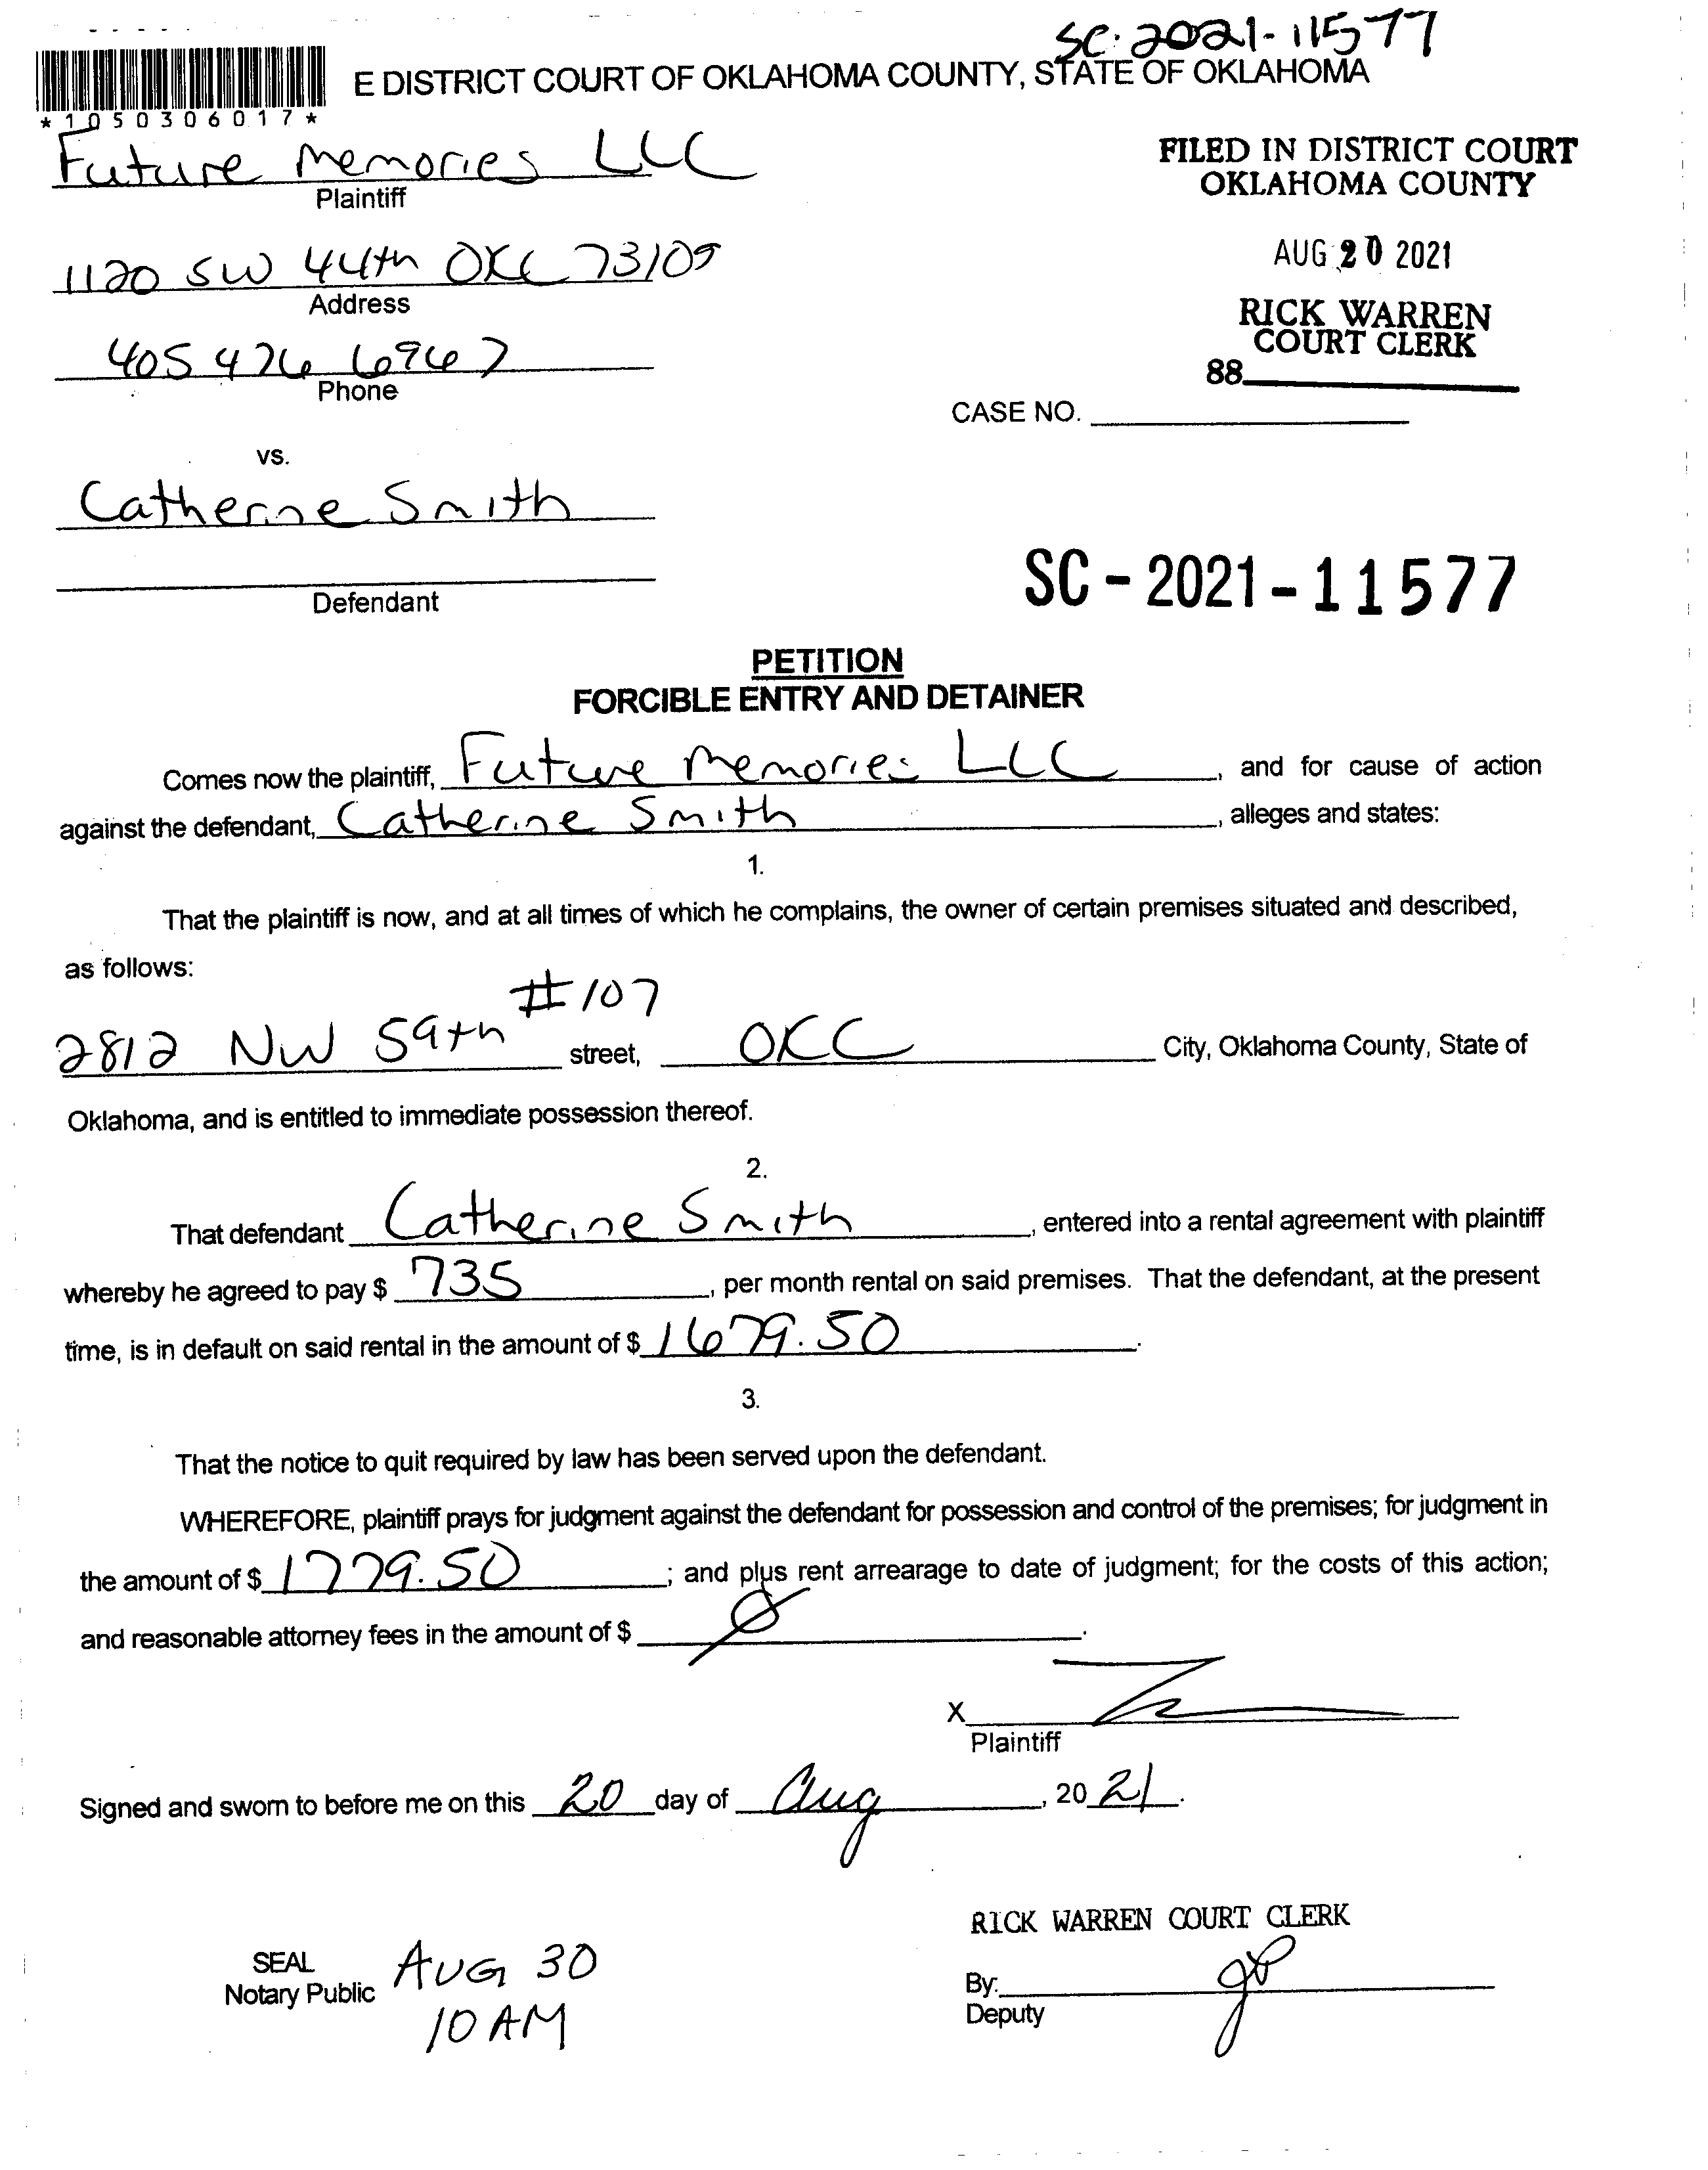 SC-2021-11577
E DISTRICT COURT OF OKLAHOMA COUNTY, STATE OF OKLAHOMA
*1050306017*
Future Memories LLC
Plaintiff
FILED IN DISTRICT COURT
OKLAHOMA COUNTY
1120 SW 44th OKC 73109
Address
AUG 20 2021
RICK WARREN
COURT CLERK
405 426 6967
Phone
88
CASE NO.
vs.
Catherine Smith
Defendant
SC-2021-11577
PETITION
FORCIBLE ENTRY AND DETAINER
Comes now the plaintiff, Future Memories LLC, and for cause of action
against the defendant, Catherine Smith, alleges and states:
1.
That the plaintiff is now, and at all times of which he complains, the owner of certain premises situated and described,
as follows:
#107
2812 NW 59th street, OKC City, Oklahoma County, State of
Oklahoma, and is entitled to immediate possession thereof.
2.
That defendant Catherine Smith, entered into a rental agreement with plaintiff
whereby he agreed to pay $ 735, per month rental on said premises. That the defendant, at the present
time, is in default on said rental in the amount of $ 1679.50.
3.
That the notice to quit required by law has been served upon the defendant.
WHEREFORE, plaintiff prays for judgment against the defendant for possession and control of the premises; for judgment in
the amount of $ 1779.50; and plus rent arrearage to date of judgment; for the costs of this action;
and reasonable attorney fees in the amount of $ Ø.
X
Plaintiff
Signed and sworn to before me on this 20 day of Aug, 20 21.
RICK WARREN COURT CLERK
SEAL
Notary Public
AUG 30
10 AM
By:
Deputy